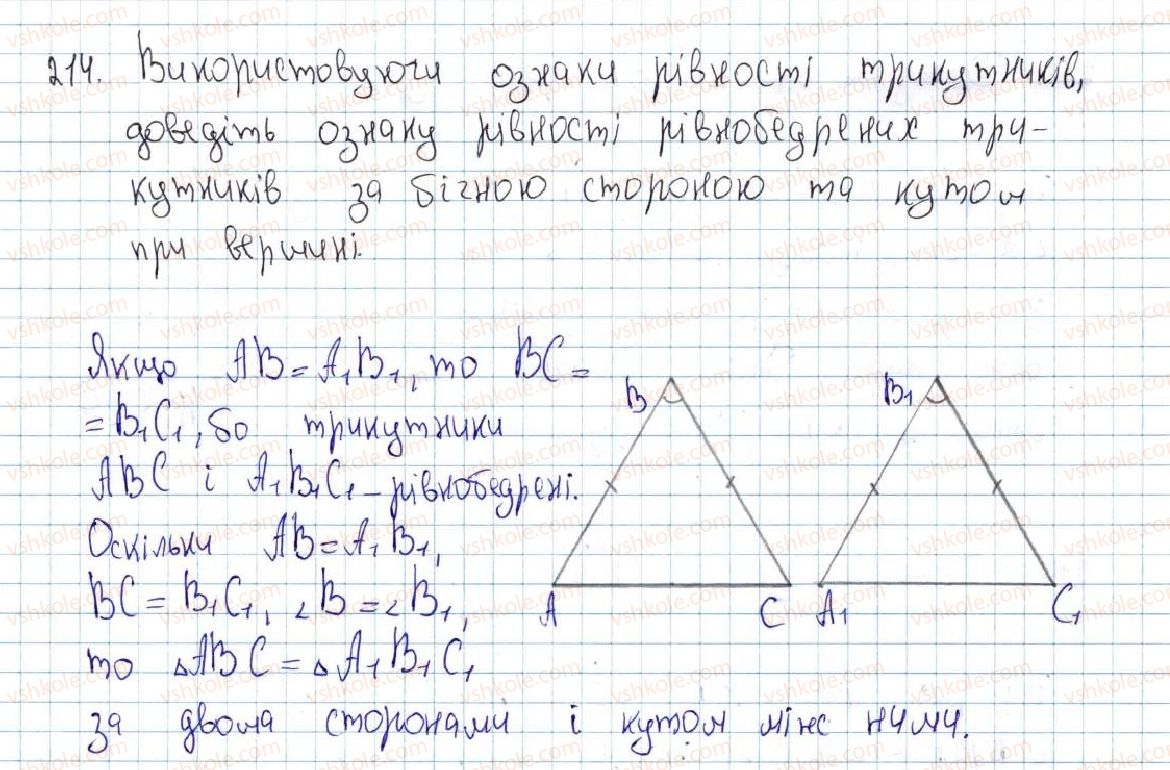 214. Використовуючи ознаки рівності трикутників,
доведіть ознаку рівності рівнобедрених три-
кутників за бічною стороною та кутом
при вершині.
Якщо AB = A₁B₁, то BC =
= B₁C₁, бо трикутники
ABC і A₁B₁C₁ – рівнобедрені.
Оскільки AB = A₁B₁,
BC = B₁C₁, ∠B = ∠B₁,
то ΔABC = ΔA₁B₁C₁
за двома сторонами і кутом між ними.
B
B₁
A
C
A₁
C₁
vshkole.com